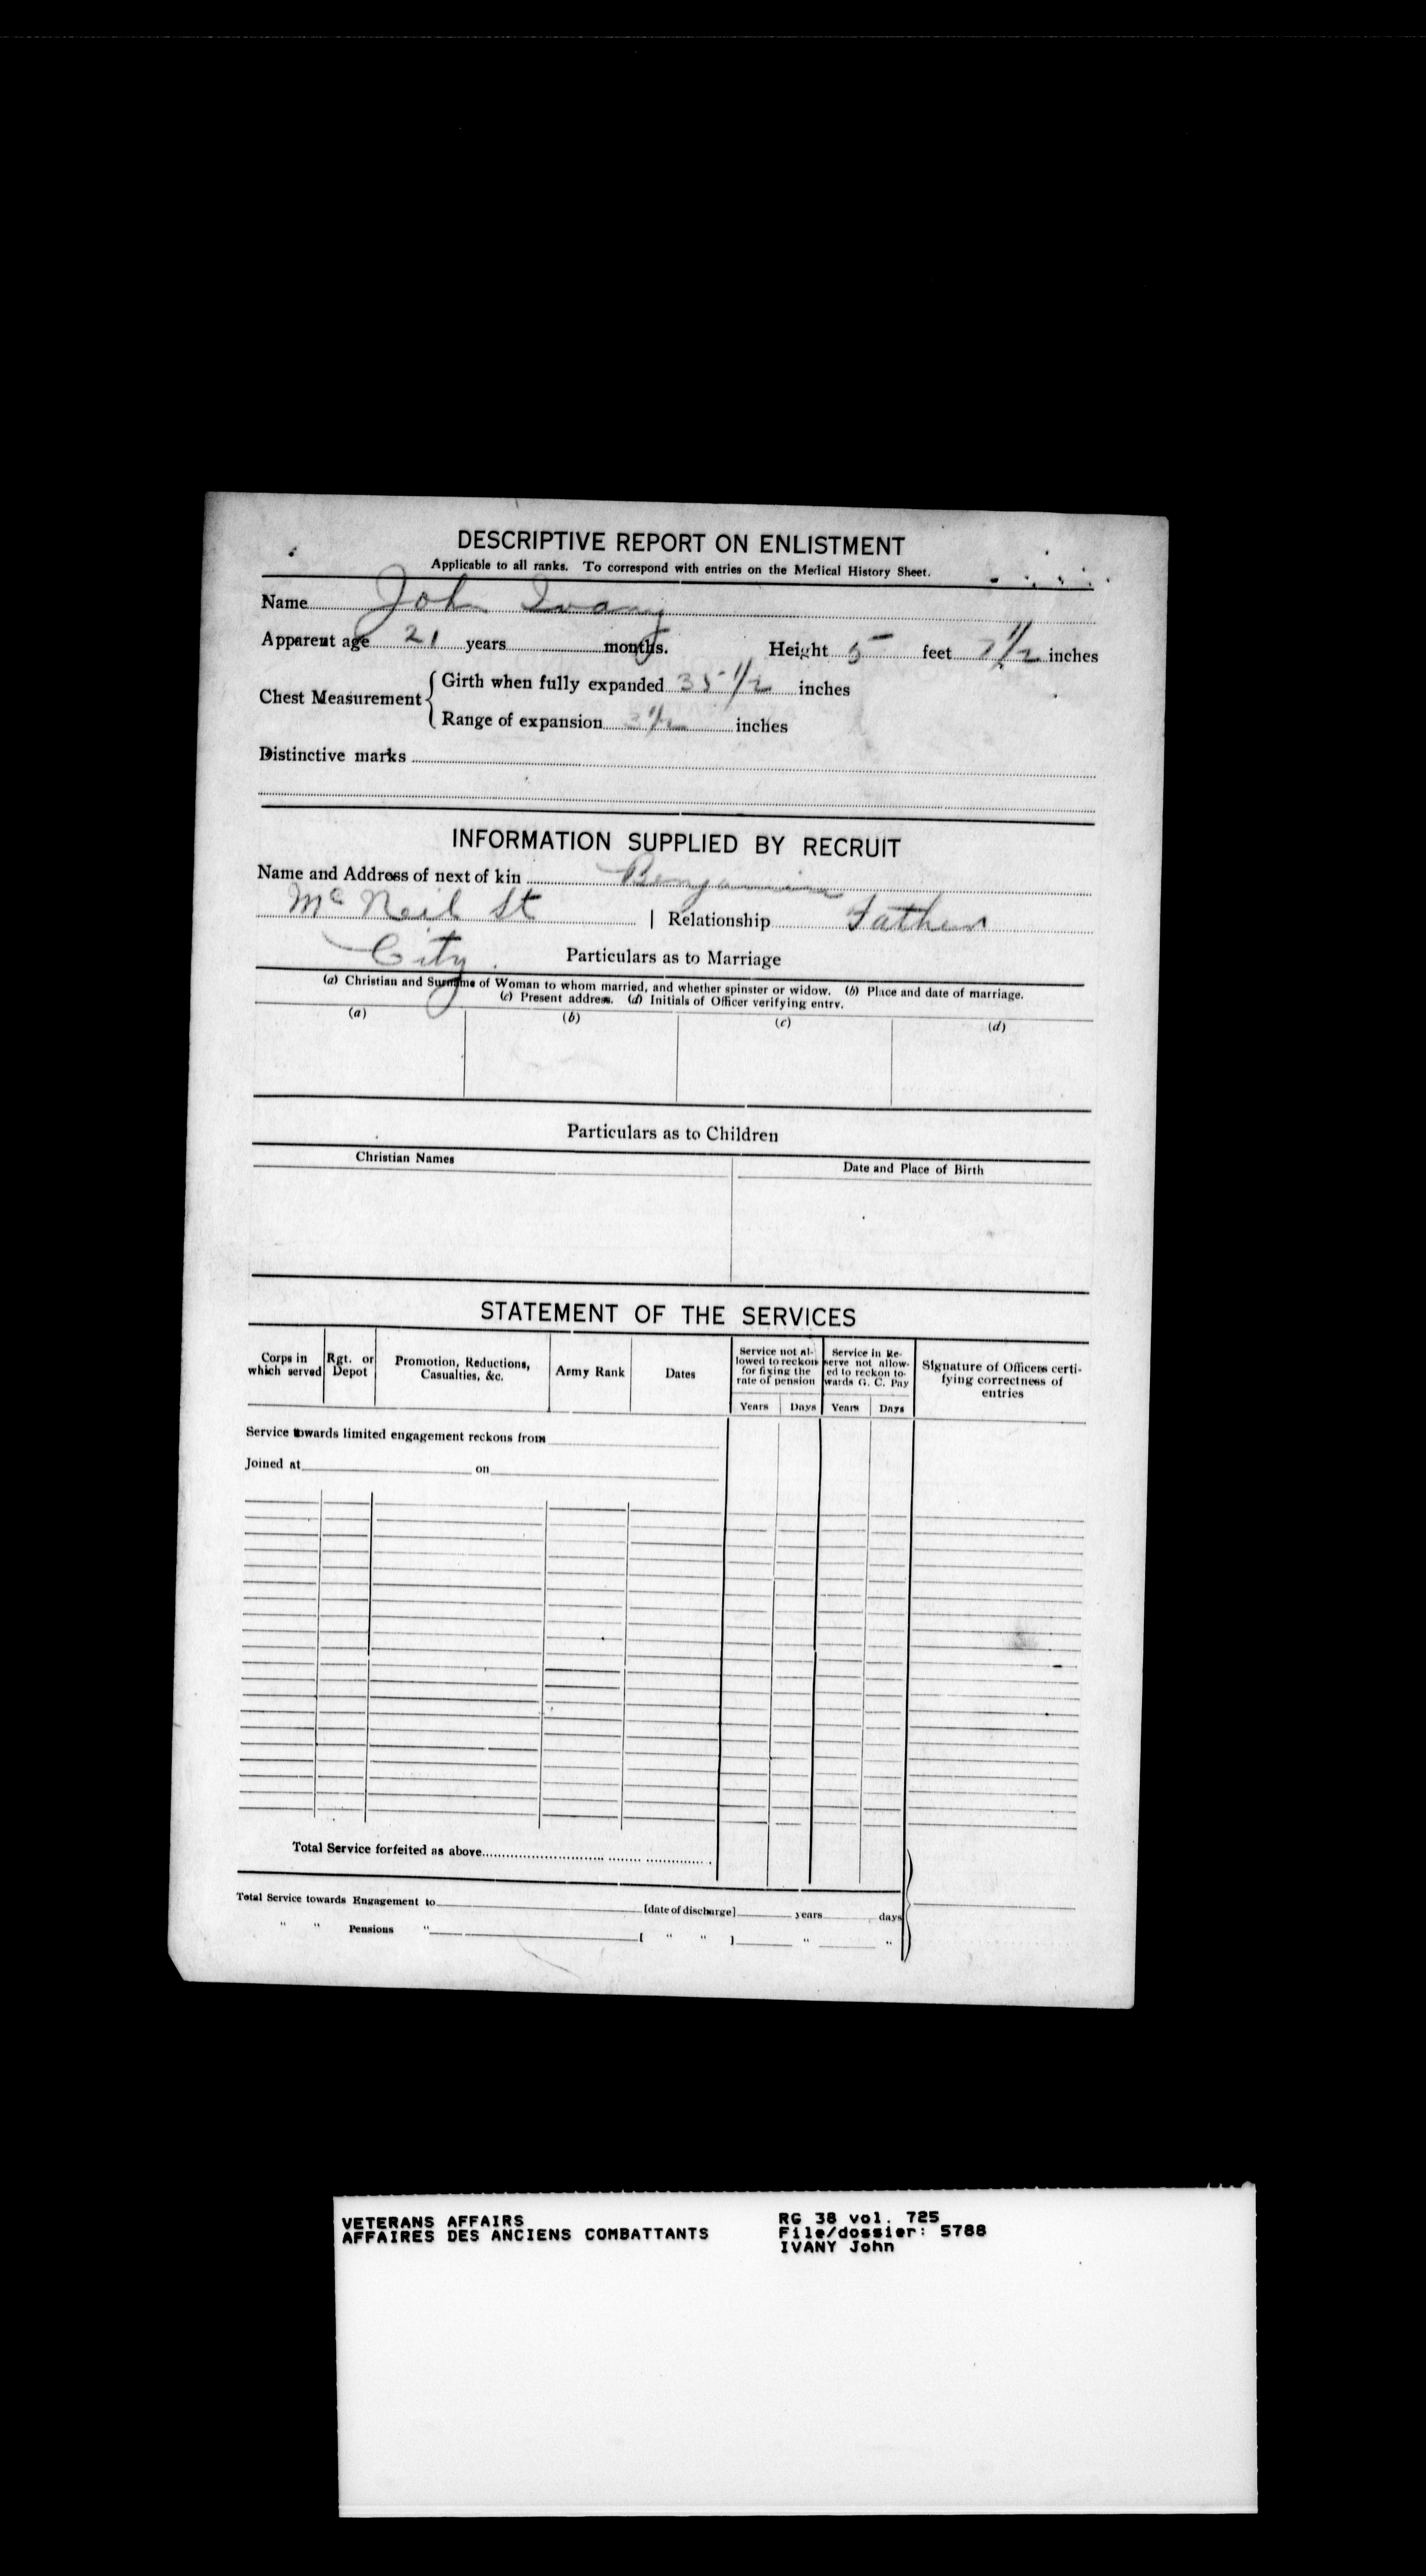 DESCRIPTIVE REPORT ON ENLISTMENT
Applicable to all ranks. To correspond with entries on the Medical History Sheet.
Name John Ivany
Apparent age 21 years months. Height 5 feet 7 1/2 inches
Chest Measurement
Girth when fully expanded 35 1/2 inches
Range of expansion 3 1/2 inches
Distinctive marks
INFORMATION SUPPLIED BY RECRUIT
Name and Address of next of kin Benjamin
McNeil St | Relationship Father
City.
Particulars as to Marriage
(a) Christian and Surname of Woman to whom married, and whether spinster or widow. (b) Place and date of marriage.
(c) Present address. (d) Initials of Officer verifying entry.
(a) (b) (c) (d)
Particulars as to Children
Christian Names Date and Place of Birth
STATEMENT OF THE SERVICES
Corps in which served
Rgt. or Depot
Promotion, Reductions, Casualties, &c.
Army Rank
Dates
Service not allowed to reckon for fixing the rate of pension
Service in Reserve not allowed to reckon towards G. C. Pay
Signature of Officers certifying correctness of entries
Years Days Years Days
Service towards limited engagement reckons from
Joined at on
Total Service forfeited as above
Total Service towards Engagement to [date of discharge] years days
" " Pensions " [ " " ] " "
VETERANS AFFAIRS
AFFAIRES DES ANCIENS COMBATTANTS
RG 38 vol. 725
File/dossier: 5788
IVANY John